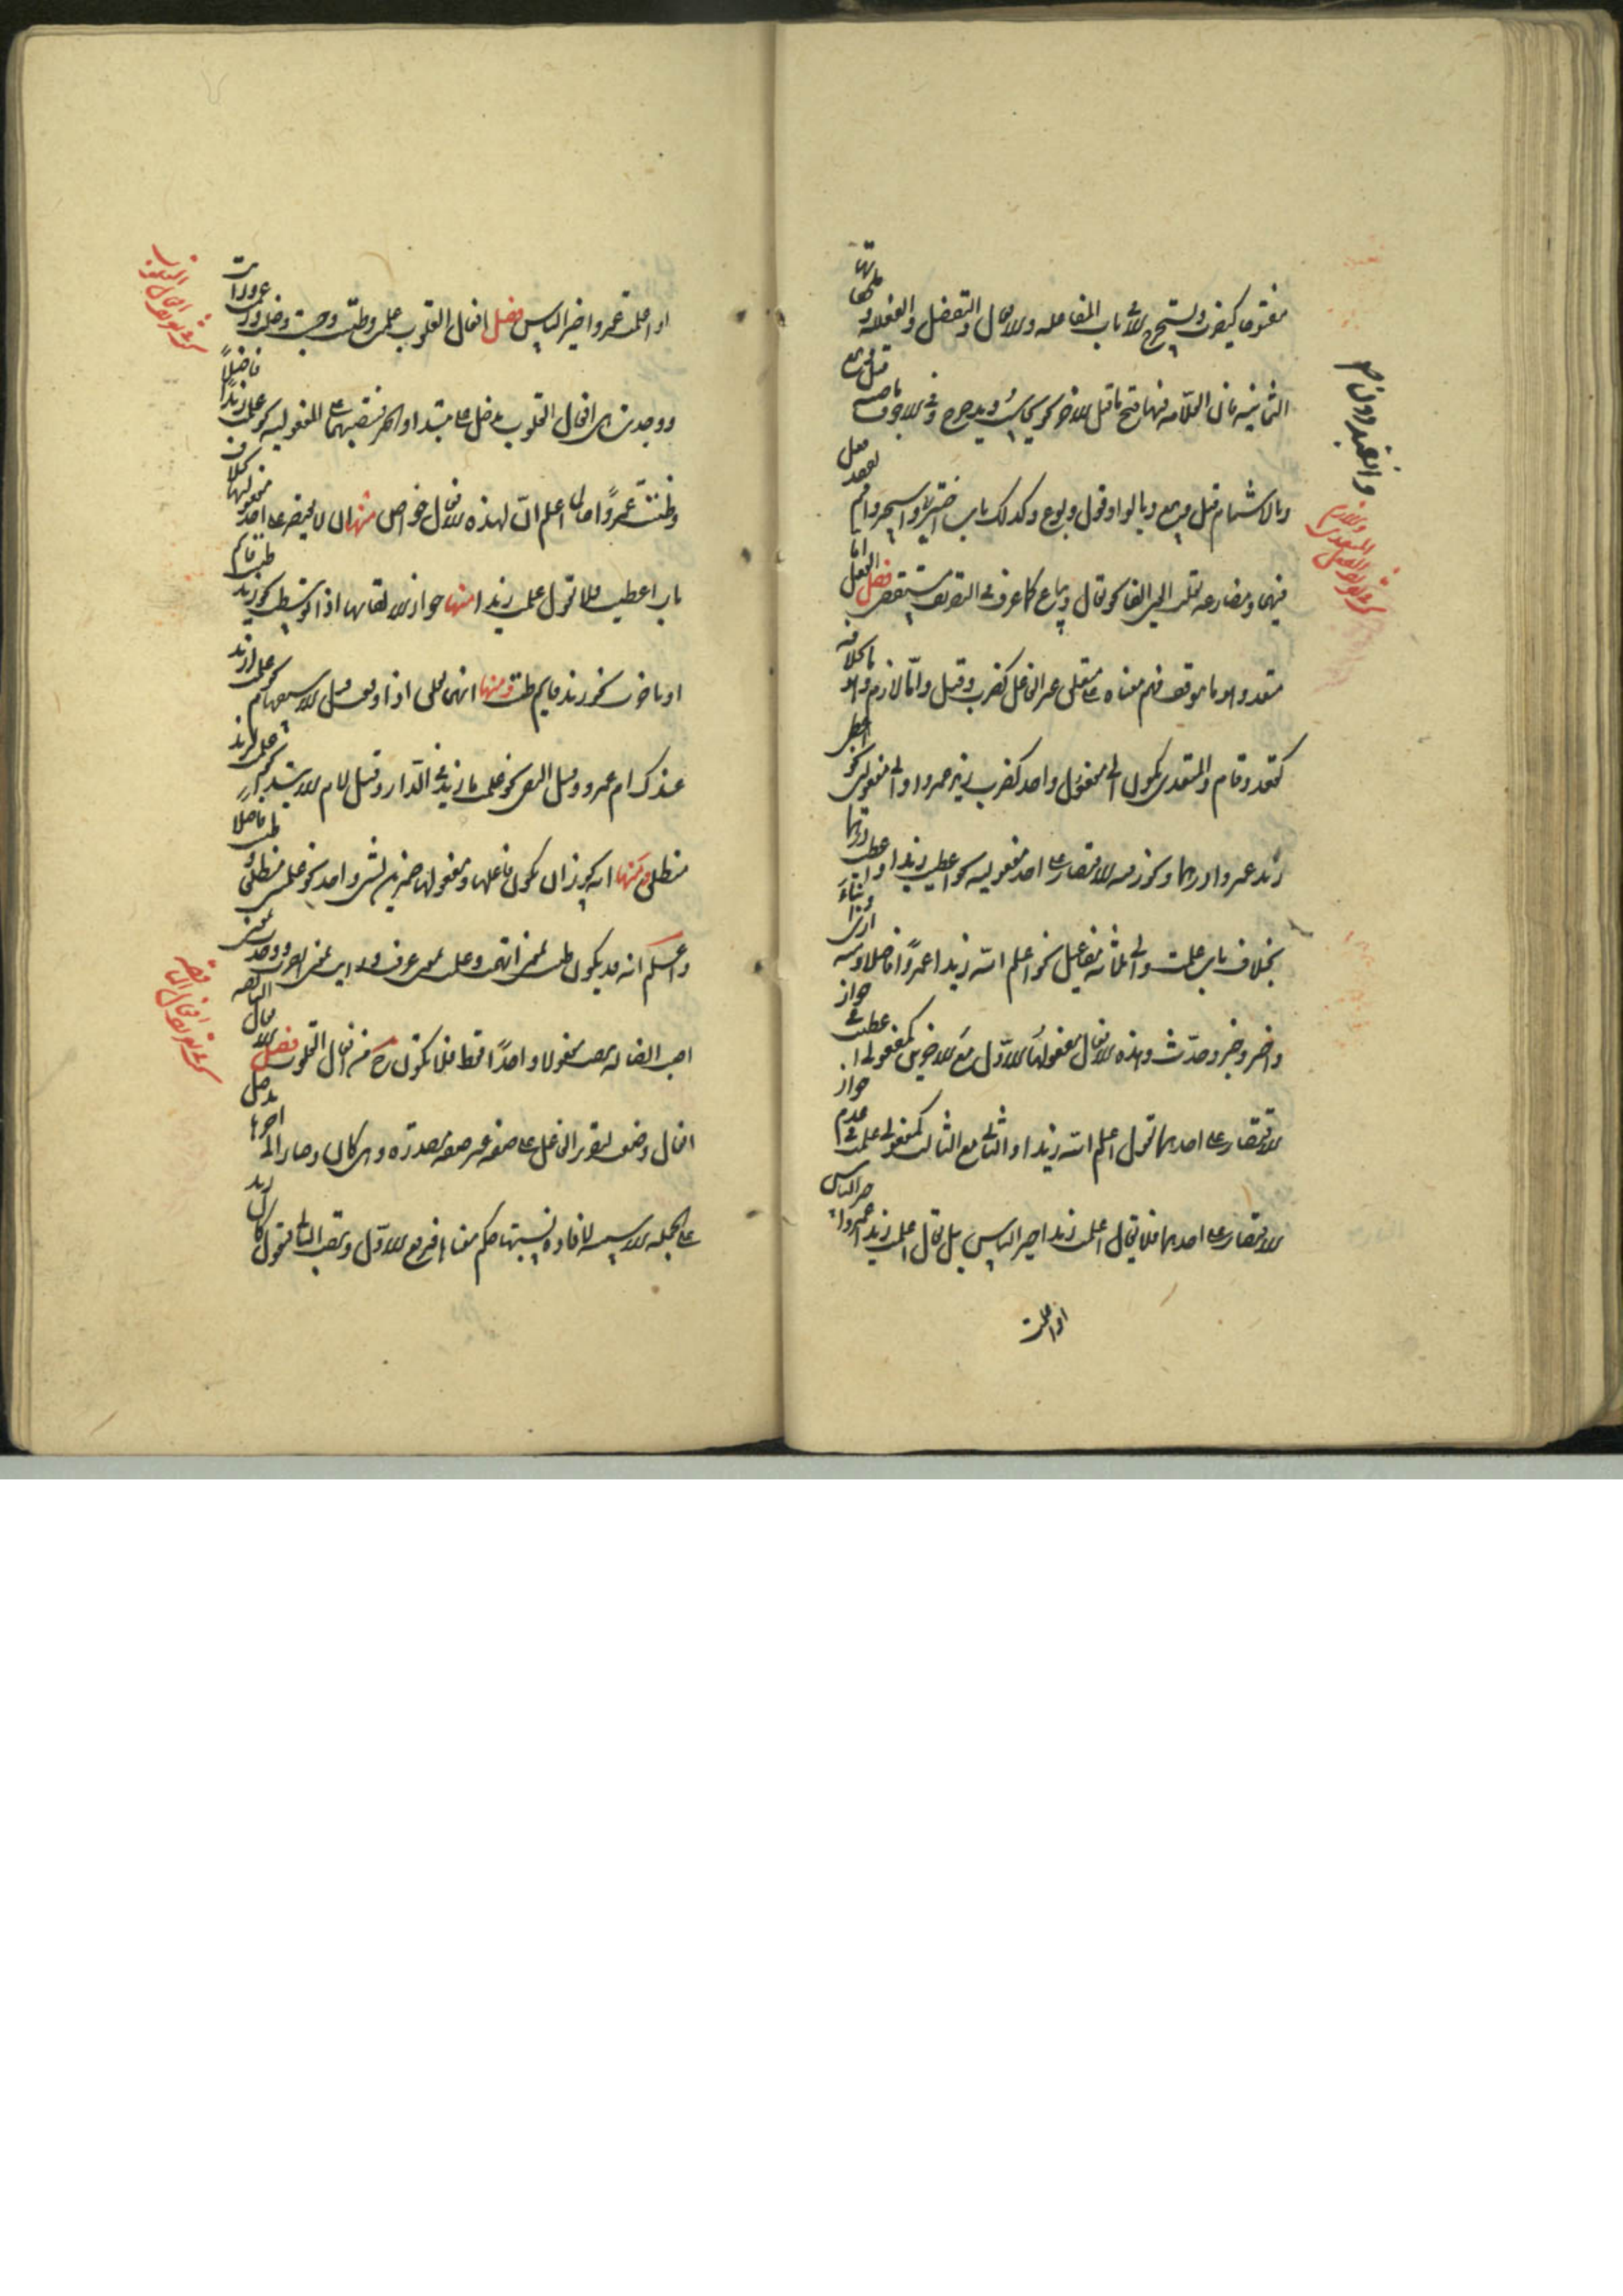 مفتوحا كيضرب ويستخرج الا في باب المفاعلة والافعال والتفعيل والفعللة وملحقاتها
الثمانية فان العلامة فيها فتح ما قبل الاخر نحو يحاسب ويدحرج وفي الاجوف ماضيه قيل وبيع
وبالاشمام قيل وبيع وبالواو قول وبوع وكذلك باب اختير وانقيد دون استخير واقيم لفقد فعل
فيهما ومضارعه تقلب العين الفا نحو يقال ويباع كما عرفت في التصريف مستقصى فصل الفعل اما
متعد وهو ما يتوقف فهم معناه على متعلق غير الفاعل كضرب وقتل واما لازم وهو بخلافه
كقعد وقام والمتعدي يكون الى مفعول واحد كضرب زيد عمروا والى مفعولين نحو اعطى
زيد عمروا درهما ويجوز فيه الاقتصار على احد مفعوليه نحو اعطيت زيدا واعطيت درهما
بخلاف باب علمت والى ثلاثة مفاعيل نحو اعلم الله زيدا عمروا فاضلا ومنه ارى وانبأ ونبأ
واخبر وخبر وحدث وهذه الافعال مفعولها الاول مع الاخيرين كمفعولي اعطيت في جواز
الاقتصار على احدهما تقول اعلم الله زيدا والثاني مع الثالث كمفعولي علمت في عدم جواز
الاقتصار على احدهما فلا يقال اعلمت زيدا خير الناس بل يقال اعلمت زيدا عمروا خير الناس
او اعلمت
وانقيد دون
في تعريف الفعل المتعدي واللازم
او اعلمت عمروا خير الناس فصل افعال القلوب علمت وظننت وحسبت وخلت ورأيت وزعمت
ووجدت وهي افعال القلوب تدخل على مبتدا والخبر فتنصبهما على المفعولية نحو علمت زيدا فاضلا
وظننت عمروا عالما اعلم ان لهذه الافعال خواص منها ان لا يقتصر على احد مفعوليها بخلاف
باب اعطيت فلا تقول علمت زيدا منها جواز الالغاء اذا توسطت نحو زيد ظننت قائم
او تاخرت نحو زيد قائم ظننت ومنها انها تعلق اذا وقعت قبل الاستفهام نحو علمت ازيد
عندك ام عمرو وقبل النفي نحو علمت ما زيد في الدار وقبل لام الابتداء نحو علمت لزيد
منطلق ومنها انه يجوز ان يكون فاعلها ومفعولها ضميرين لشيء واحد نحو علمتني منطلقا وظننتك فاضلا
واعلم انه قد يكون ظننت بمعنى اتهمت وعلمت بمعنى عرفت ورأيت بمعنى ابصرت ووجدت بمعنى
اصبت الضالة فتنصب مفعولا واحدا فقط فلا تكون ح من افعال القلوب فصل الافعال الناقصة
افعال وضعت لتقرير الفاعل على صفة غير صفة مصدره وهي كان وصار الى اخرها تدخل
على الجملة الاسمية لافادة نسبتها حكم معناها فترفع الاول وتنصب الثاني فتقول كان زيد
في تعريف افعال القلوب
في تعريف افعال الناقصة